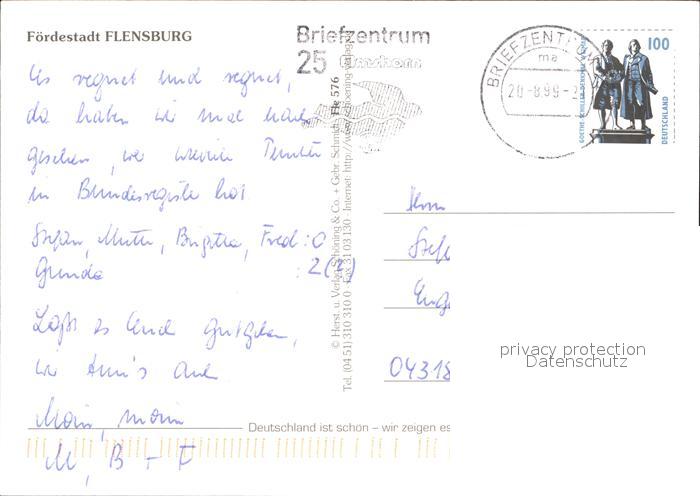 Fördestadt FLENSBURG
Briefzentrum
25
BRIEFZENTRUM
ma
20.-8.99-
100
GOETHE-SCHILLER-DENKMAL WEIMAR
DEUTSCHLAND
Es regnet und regnet,
da haben wir mal
gesehen, wer
in Bundesregister hat
Stefan, Mutter, Brigitta, Fred: 0
Gunda : 2(?)
Laßt es Euch gutgehen,
wir tun's auch
Moin, moin
M, B + F
© Herst. u. Verlag Schöning & Co. + Gebr. Schmidt Fle 576
Tel. (04 51) 310 310 · Fax 31 03 130 · Internet: http://www.schoening-verlag.de
Herrn
Stef
04318
privacy protection
Datenschutz
Deutschland ist schön – wir zeigen es